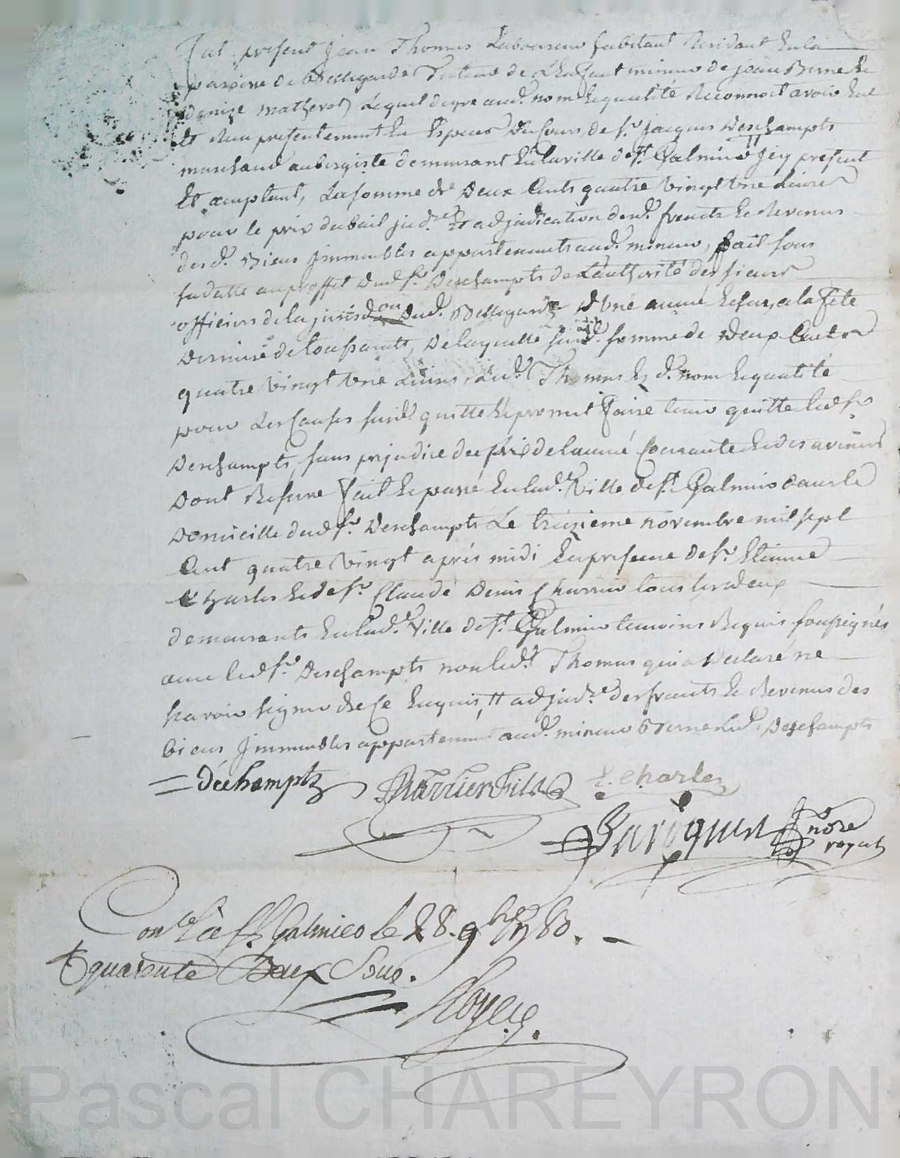 fut présent Jean Thomas Laboureur habitant Residant En la
paroisse de Bellegarde Tuteur de L'Enfant mineur de jean Berne Et
denize matherot Lequel de gre aud. nom Et qualité Reconnoit avoir Eut
Et Reçu presentement En Especes Du Cours de sr. jacques Deschampts
marchand aubergiste demeurant En la ville de st. Galmier jcy present
Et acceptant, La somme de Deux Cents quatre vingt une Livres
pour le prix du bail judre. Et adjudication des fruits Et Revenus
des d. Biens jmmeubles appartenants aud. mineur, fait sous
sa datte au proffit Dud. sr. Deschampts de L'authorité des sieurs
officiers de la jurisdon Dud. Bellegarde D'une année Echue a la fete
Derniere de toussaints, De laquelle susd. somme de Deux Cents
quatre vingt une Livres Led. Thomas Es d. nom Et qualité
pour Les Causes susd. quitte Et promet faire tenir quitte Led. sr.
Deschampts, sans prejudice des prix de l'année Courante Et des avenirs
Dont Reserve fait Et passé En lad. ville de st. Galmier dans le
Domicille dud. sr. Deschampts Le treizieme novembre mil sept
Cent quatre vingt après midi En presence de sr. Etienne
Charles Et de sr. Claude Denis Charrier tous les deux
demeurants En lad. ville de st. Galmier temoins Requis soussignés
avec Led. sr. Deschampts non Led. Thomas qui a Declaré ne
Scavoir signer De Ce Enquis, Et adjudre. des fruits Et Revenus des
biens jmmeubles appartenant aud. mineur Berne Led. Deschampts
= déchamptz Charrier fils E. Charles
nore
royal
Conlé a st. Galmier le 28. 9bre 1780. -
R quarante Deux Sous.